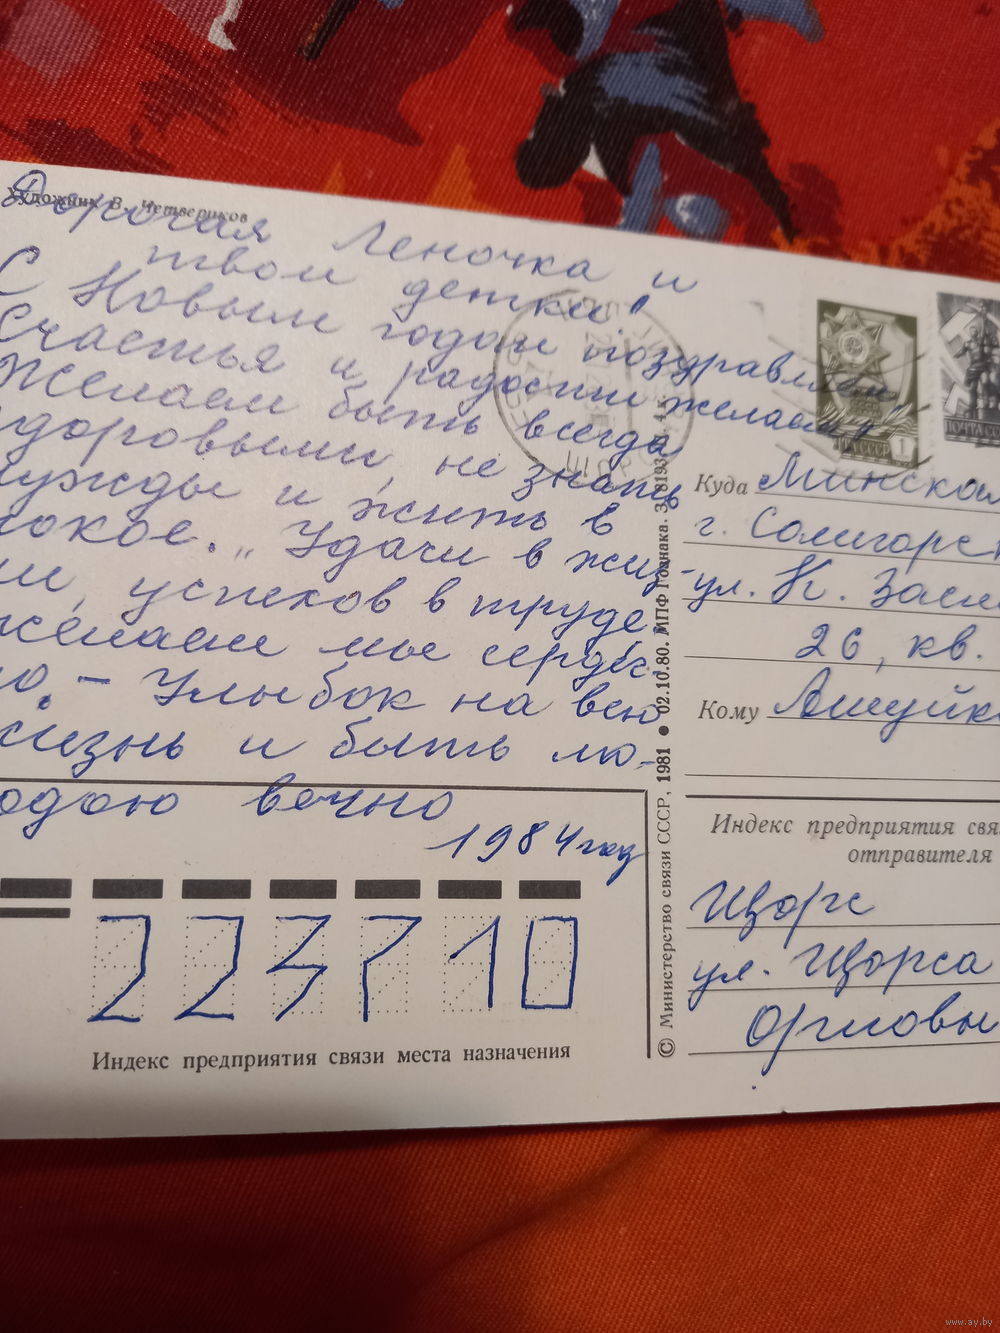 Художник В. Четвериков
Дорогая Леночка и
твои детки!
С Новым годом поздравляем
Счастья и радости желаем"
Желаем быть всегда
здоровыми, не знать
нужды и жить в
покое. „Удачи в жиз-
ни, успехов в труде
желаем мы сердеч
но. – Улыбок на всю
жизнь и быть мо-
лодою вечно
1984 год
223710
Индекс предприятия связи места назначения
© Министерство связи СССР, 1981 ● 02.10.80. МПФ Гознака.
ПОЧТА СССР 1
ПОЧТА СССР
Куда Минская
г. Солигорск
ул. К. Засл
26, кв.
Кому Ашуйко
Индекс предприятия связи
отправителя
Щорс
ул. Щорса
www.ay.by